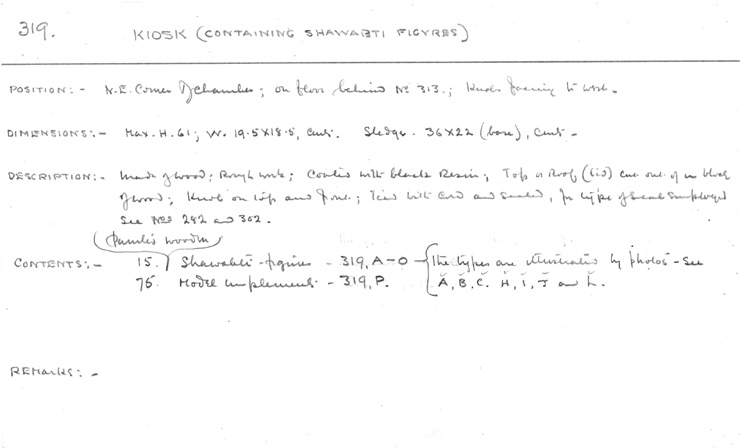 319.
KIOSK (CONTAINING SHAWABTI FIGURES)
POSITION:- N.E. Corner of chamber; on floor behind No 313.; Knobs facing to west.
DIMENSIONS:- Max. H. 61; W. 19.5 X 18.5, cents. Sledge. 36 X 22 (base), cents.
DESCRIPTION:- Made of wood; Rough work; Coated with black Resin; Top or Roof (lid) cut out of one block
of wood; Knob on top and front; Tied with cord and sealed, for type of seal employed
see Nos 282 and 302.
(Painted wooden
CONTENTS:- 15. Shawabti-figures - 319, A-O - The types are illustrated by photos - see
75. Model implements - 319, P. A, B, C. H, I, J and L.
REMARKS:-